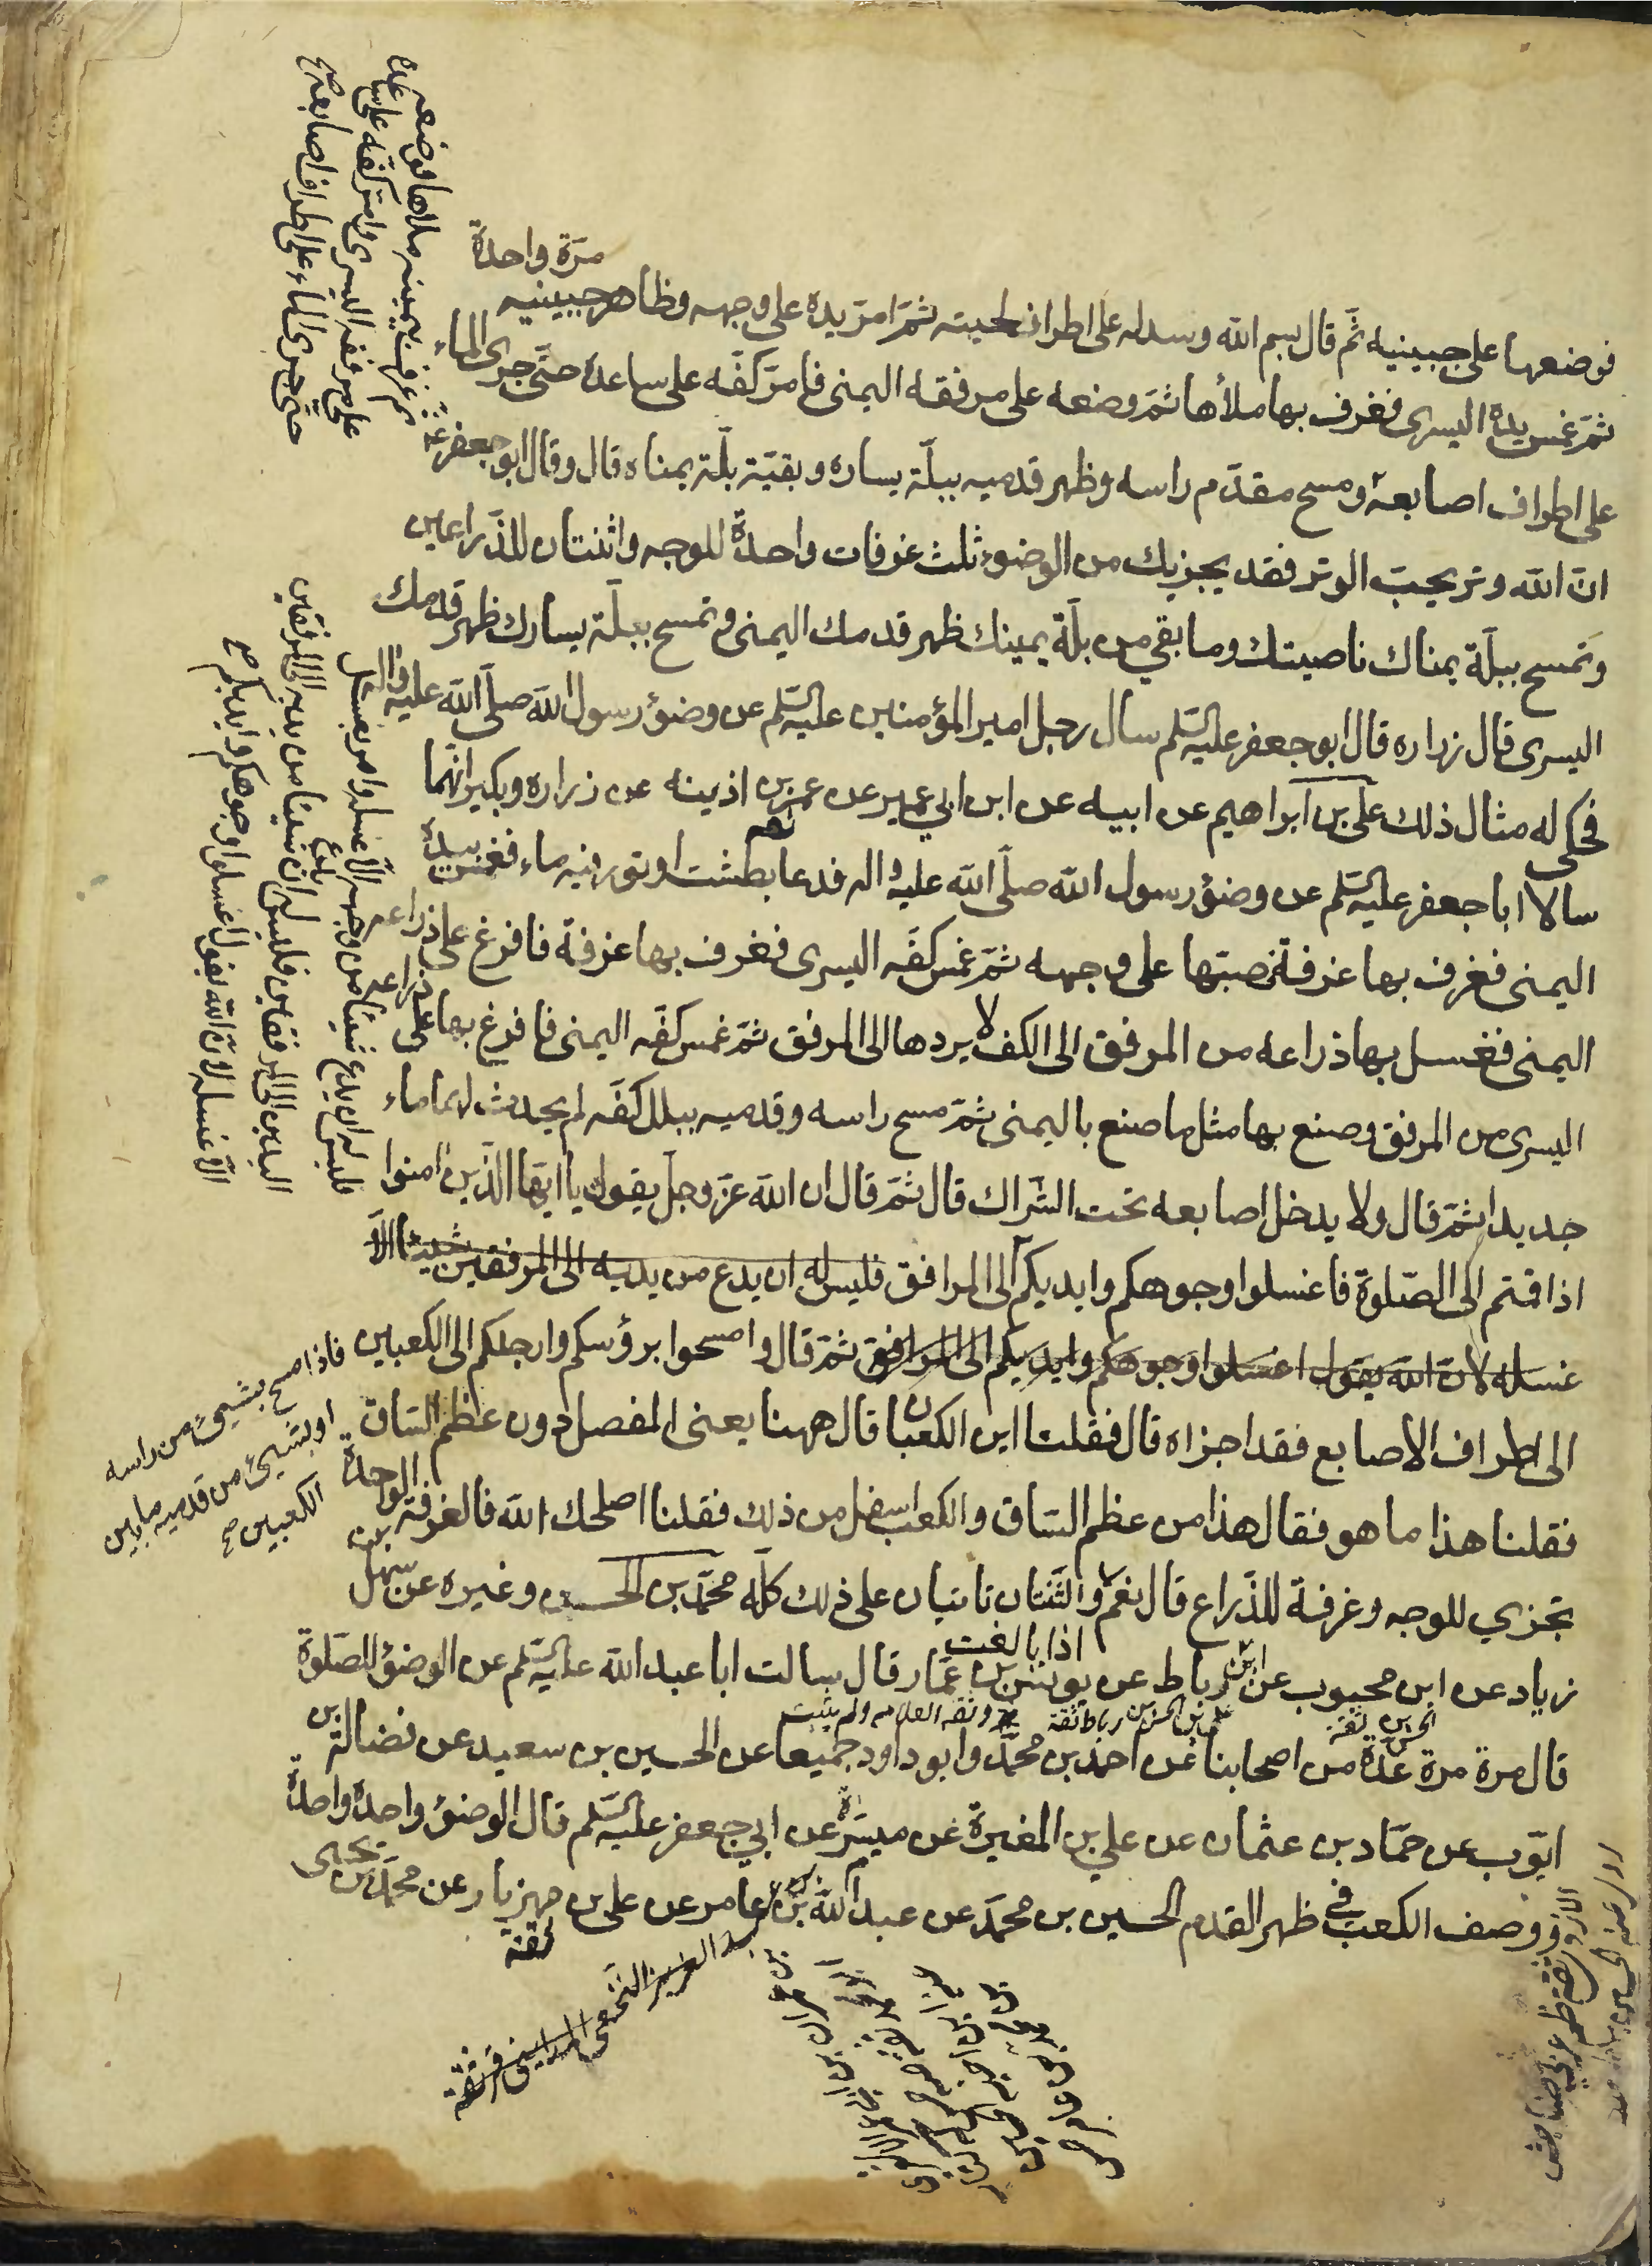 مرّة واحدة
فوضعها على جبينيه ثمّ قال بسم الله وسدله على اطراف لحيته ثمّ امرّ يده على وجهه وظاهر جبينيه
ثمّ غمس يده اليسرى فغرف بها ملأها ثمّ وضعه على مرفقه اليمنى فامرّ كفّه على ساعده حتّى جرى الماء
على اطراف اصابعه ومسح مقدّم راسه وظهر قدميه ببلّة يساره وبقيّة بلّة يمناه قال وقال ابو جعفر ع
انّ الله وتر يحبّ الوتر فقد يجزيك من الوضوء ثلث غرفات واحدة للوجه واثنتان للذّراعين
وتمسح ببلّة يمناك ناصيتك وما بقي من بلّة يمينك ظهر قدمك اليمنى وتمسح ببلّة يسارك ظهر قدمك
اليسرى قال زراره قال ابو جعفر عليه السّلم سال رجل امير المؤمنين عليه السّلم عن وضؤ رسول الله صلّى الله عليه واله
فحكى له مثال ذلك علىّ بن ابراهيم عن ابيه عن ابن ابي عمير عن عمر بن اذينه عن زراره وبكير انّهما
سالا ابا جعفر عليه السّلم عن وضؤ رسول الله صلّى الله عليه واله فدعا بطشت اوتور فيه ماء فغمس يده
اليمنى فغرف بها غرفة فصبّها على وجهه ثمّ غمس كفّه اليسرى فغرف بها غرفة فافرغ على ذراعه
اليمنى فغسل بها ذراعه من المرفق الى الكف لا يردها الى المرفق ثمّ غمس كفّه اليمنى فافرغ بها على ذراعه
اليسرى من المرفق وصنع بها مثل ما صنع باليمنى ثمّ مسح راسه وقدميه ببلل كفّه لم يحدث لهما ماء
جديدا ثمّ قال ولا يدخل اصابعه تحت الشّراك قال ثمّ قال ان الله عزّ وجلّ يقول يا ايّها الّذين امنوا
اذا قمتم الى الصّلوة فاغسلوا وجوهكم وايديكم الى المرافق فليس له ان يدع من يديه الى المرفقين شيئا الّا
غسله لانّ الله يقول اغسلوا وجوهكم وايديكم الى المرافق ثمّ قال وامسحوا برؤسكم وارجلكم الى الكعبين
فاذا مسح بشيىء من راسه
او بشيىء من قدميه ما بين
الكعبين صح
الى اطراف الاصابع فقد اجزاه قال فقلنا اين الكعبان قال ههنا يعنى المفصل دون عظم السّاق
فقلنا هذا ما هو فقال هذا من عظم السّاق والكعب اسفل من ذلك فقلنا اصلحك الله فالغرفة الوحدة
تجزي للوجه وغرفة للذّراع قال نعم اذا بالغت والثّنتان تاتيان على ذلك كلّه محمّد بن الحسن وغيره عن سهل بن
زياد عن ابن محبوب عن ابن رباط عن يونس بن عمّار قال سالت ابا عبد الله عليه السّلم عن الوضؤ للصّلوة
قال مرة مرة عدّة من اصحابنا عن احمد بن محمّد وابو داود جميعا عن الحسين بن سعيد عن فضالة بن
ايّوب عن حمّاد بن عثمان عن علي بن المغيرة عن ميسرة عن ابي جعفر عليه السّلم قال الوضؤ واحدة واحدة
ووصف الكعب في ظهر القدم الحسين بن محمّد عن عبد الله بن عامر عن على بن مهزيار عن محمّد بن يحيى
ثقة
ثم غرف بيمينه ملاها فوضعه
على مرفقه اليسرى وامرّ كفّه على ساعده
حتّى جرى الماء على اطراف اصابعه صح
فليس له ان يدع شيئا من وجهه الّا غسله وامر بغسل
اليدين الى المرفقين فليس له ان يدع شيئا من يديه الى المرفقين
الّا غسله لانّ الله يقول اغسلوا وجوهكم وايديكم صح